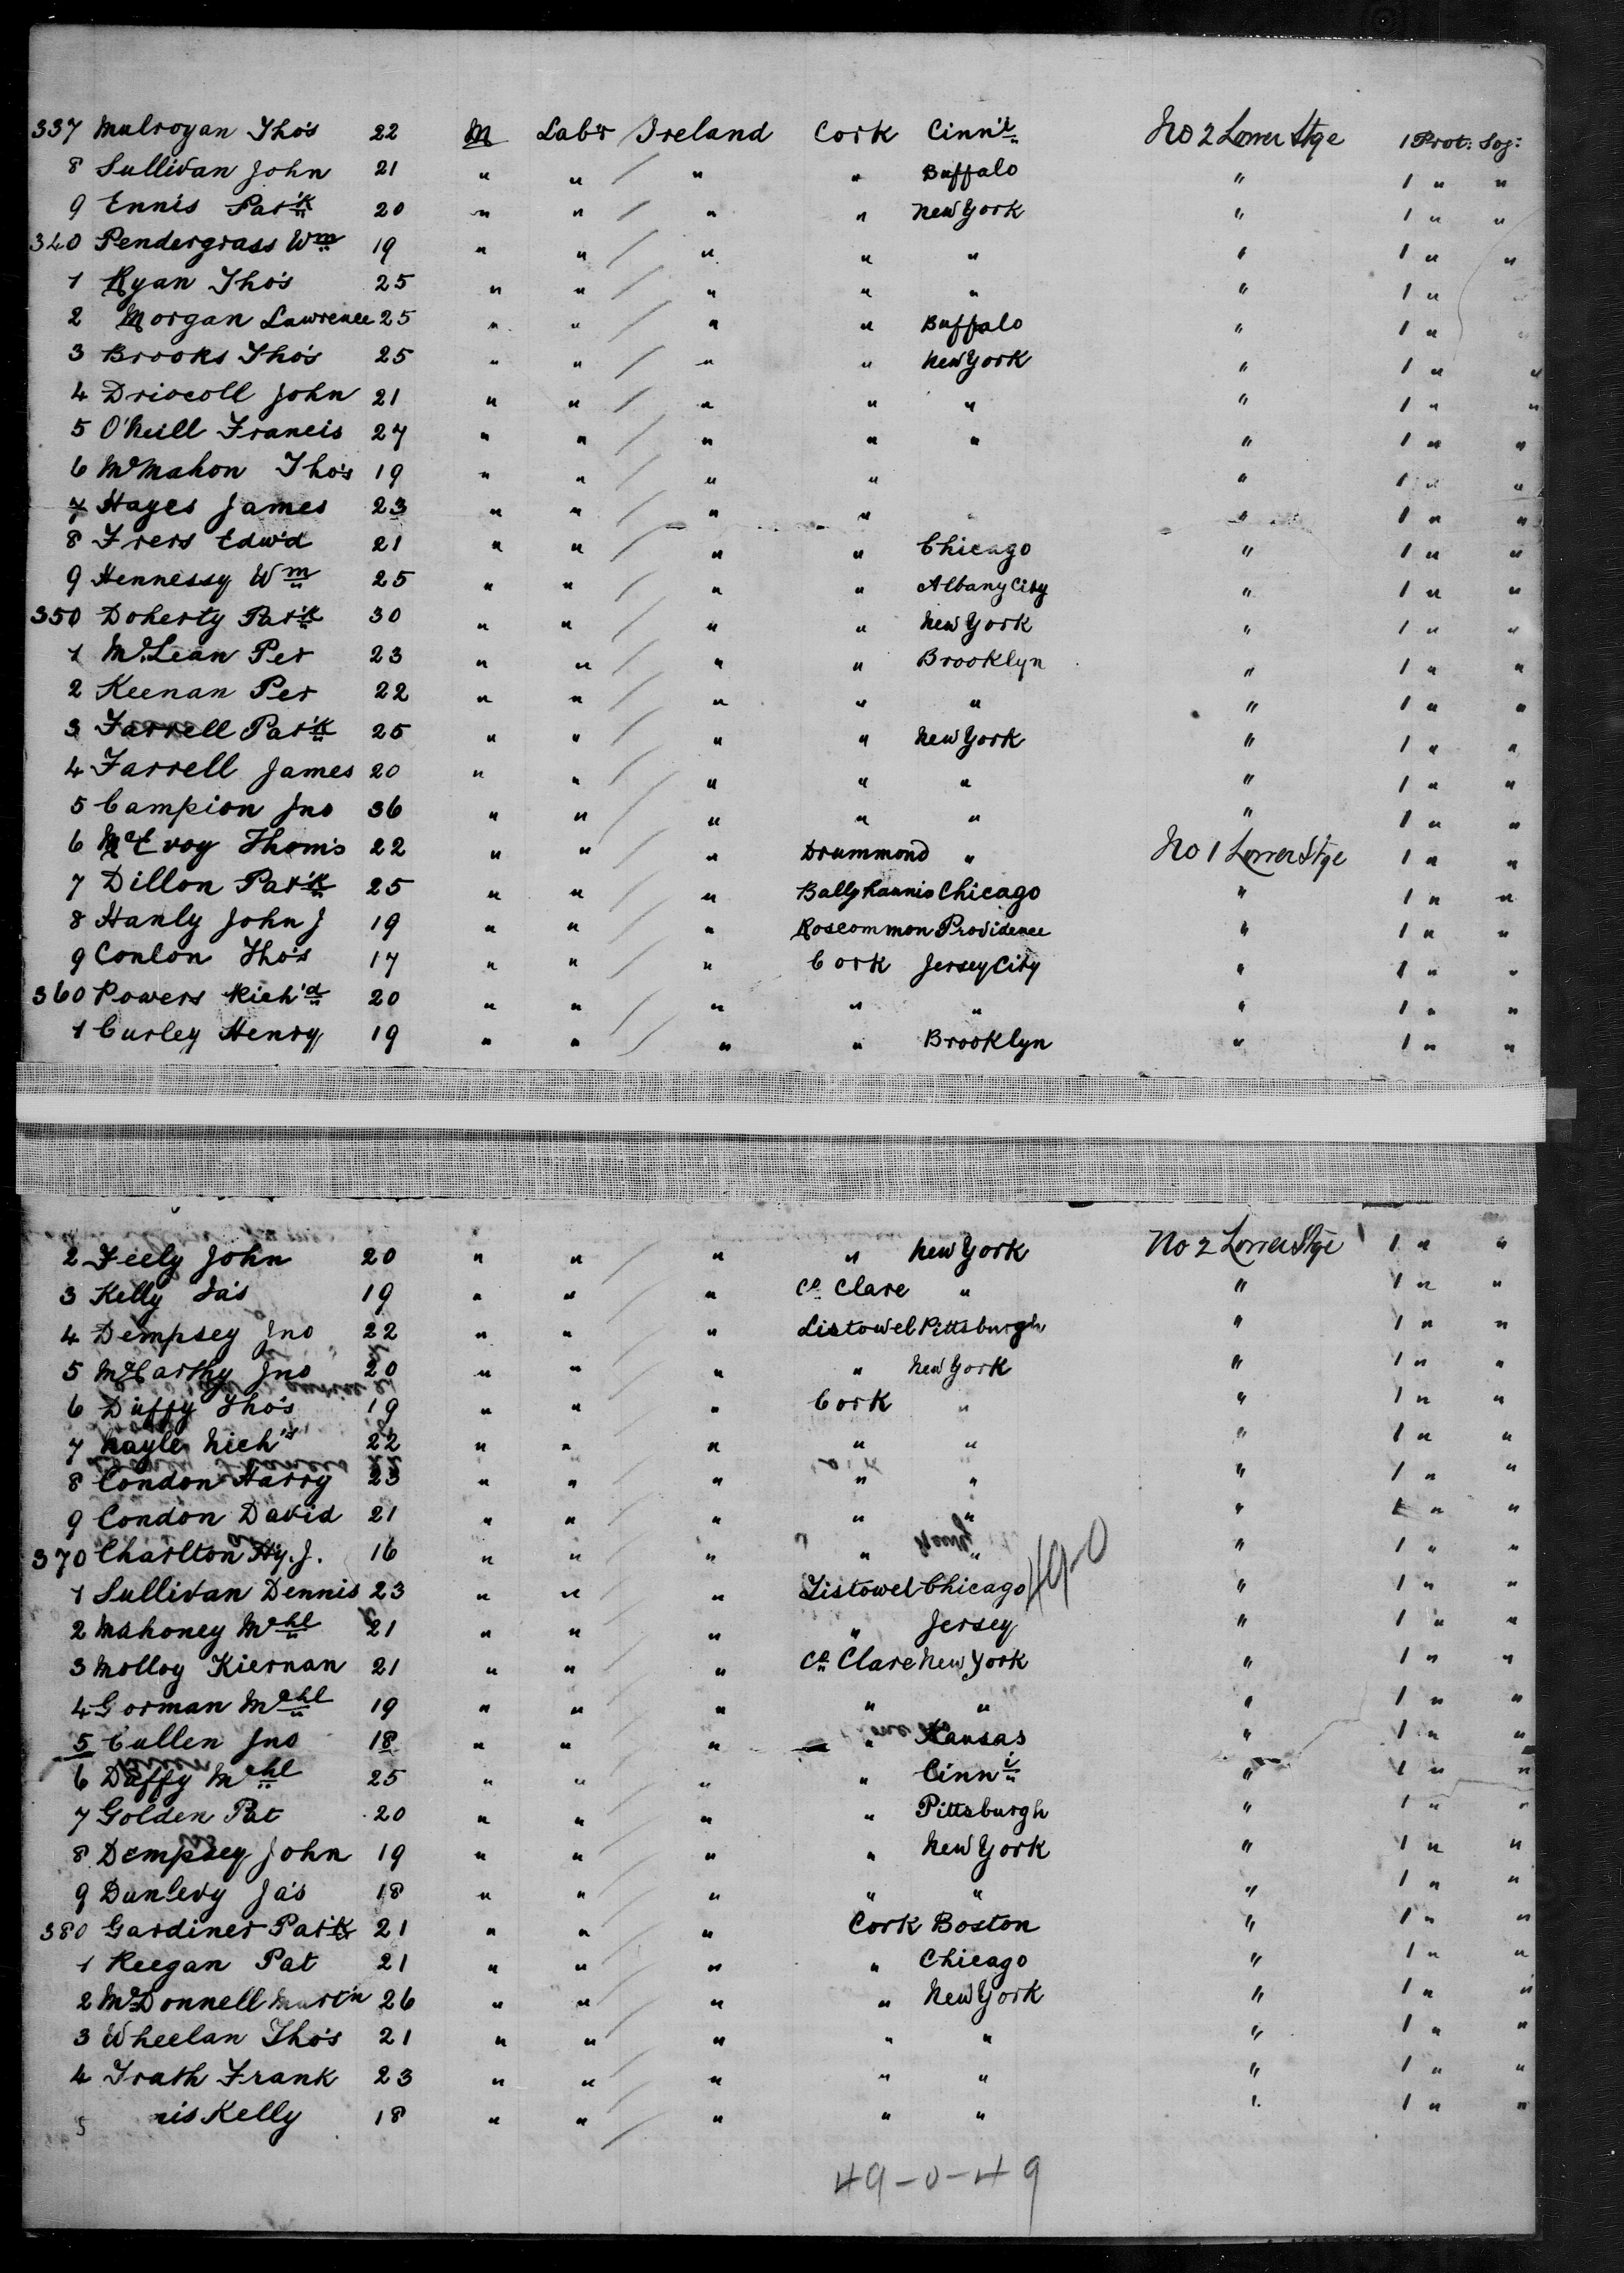 337 Mulroyan Tho's 22 M Lab'r / Ireland Cork Cinn'i No 2 Lower Stge 1 Prot: Soj:
8 Sullivan John 21 " " / " " Buffalo " 1 " "
9 Ennis Pat'k 20 " " / " " New York " 1 " "
340 Pendergrass Wm 19 " " / " " " " 1 " "
1 Ryan Tho's 25 " " / " " " " 1 "
2 Morgan Lawrence 25 " " / " " Buffalo " 1 "
3 Brooks Tho's 25 " " / " " New York " 1 " "
4 Driscoll John 21 " " / " " " " 1 " "
5 O'Neill Francis 27 " " / " " " " 1 " "
6 McMahon Tho's 19 " " / " " " 1 " "
7 Hayes James 23 " " / " " " 1 " "
8 Frers Edw'd 21 " " / " " Chicago " 1 " "
9 Hennessy Wm 25 " " / " " Albany City " 1 " "
350 Doherty Pat'k 30 " " / " " New York " 1 " "
1 McLean Per 23 " " / " " Brooklyn " 1 " "
2 Keenan Per 22 " " / " " " " 1 " "
3 Farrell Pat'k 25 " " / " " New York " 1 " "
4 Farrell James 20 " " / " " " " 1 " "
5 Campion Jno 36 " " / " " " " 1 " "
6 McEvoy Thom's 22 " " / " Drummond " No 1 Lower Stge 1 " "
7 Dillon Pat'k 25 " " / " Ballyhaunis Chicago " 1 " "
8 Hanly John J 19 " " / " Roscommon Providence " 1 " "
9 Conlon Tho's 17 " " / " Cork Jersey City " 1 " "
360 Powers Rich'd 20 " " / " " " " 1 " "
1 Curley Henry 19 " " / " " Brooklyn " 1 " "
2 Feely John 20 " " / " " New York No 2 Lower Stge 1 " "
3 Kelly Ja's 19 " " / " Co Clare " " 1 " "
4 Dempsey Jno 22 " " / " Listowel Pittsburgh " 1 " "
5 McCarthy Jno 20 " " / " " New York " 1 " "
6 Duffy Tho's 19 " " / " Cork " " 1 " "
7 Nagle Nich's 22 " " / " " " " 1 " "
8 Condon Harry 23 " " / " " " " 1 " "
9 Condon David 21 " " / " " " " 1 " "
370 Charlton Hy. J. 16 " " / " " " " 1 " "
1 Sullivan Dennis 23 " " / " Listowel Chicago " 1 " "
2 Mahoney Mchl 21 " " / " " Jersey " 1 " "
3 Molloy Kiernan 21 " " / " Co Clare New York " 1 " "
4 Gorman Mchl 19 " " / " " " " 1 " "
5 Cullen Jno 18 " " / " " Kansas " 1 " "
6 Duffy Mchl 25 " " / " " Cinn'i " 1 " "
7 Golden Pat 20 " " / " " Pittsburgh " 1 " "
8 Dempsey John 19 " " / " " New York " 1 " "
9 Dunlevy Ja's 18 " " / " " " " 1 " "
380 Gardiner Pat'k 21 " " / " Cork Boston " 1 " "
1 Keegan Pat 21 " " / " " Chicago " 1 " "
2 McDonnell Mart'n 26 " " / " " New York " 1 " "
3 Wheelan Tho's 21 " " / " " " " 1 " "
4 Trath Frank 23 " " / " " " " 1 " "
5 nis Kelly 18 " " / " " " " 1 " "
49-0-49